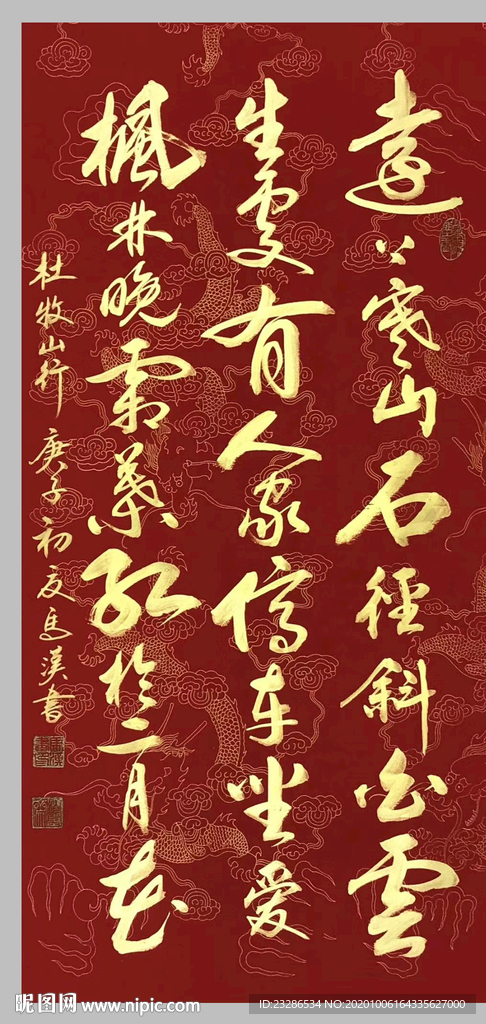 遠上寒山石徑斜白雲
生處有人家停車坐愛
楓林晚霜葉紅於二月花
杜牧山行 庚子初夏馬漢書
昵图网 www.nipic.com
ID:23286534 NO:20201006164335627000